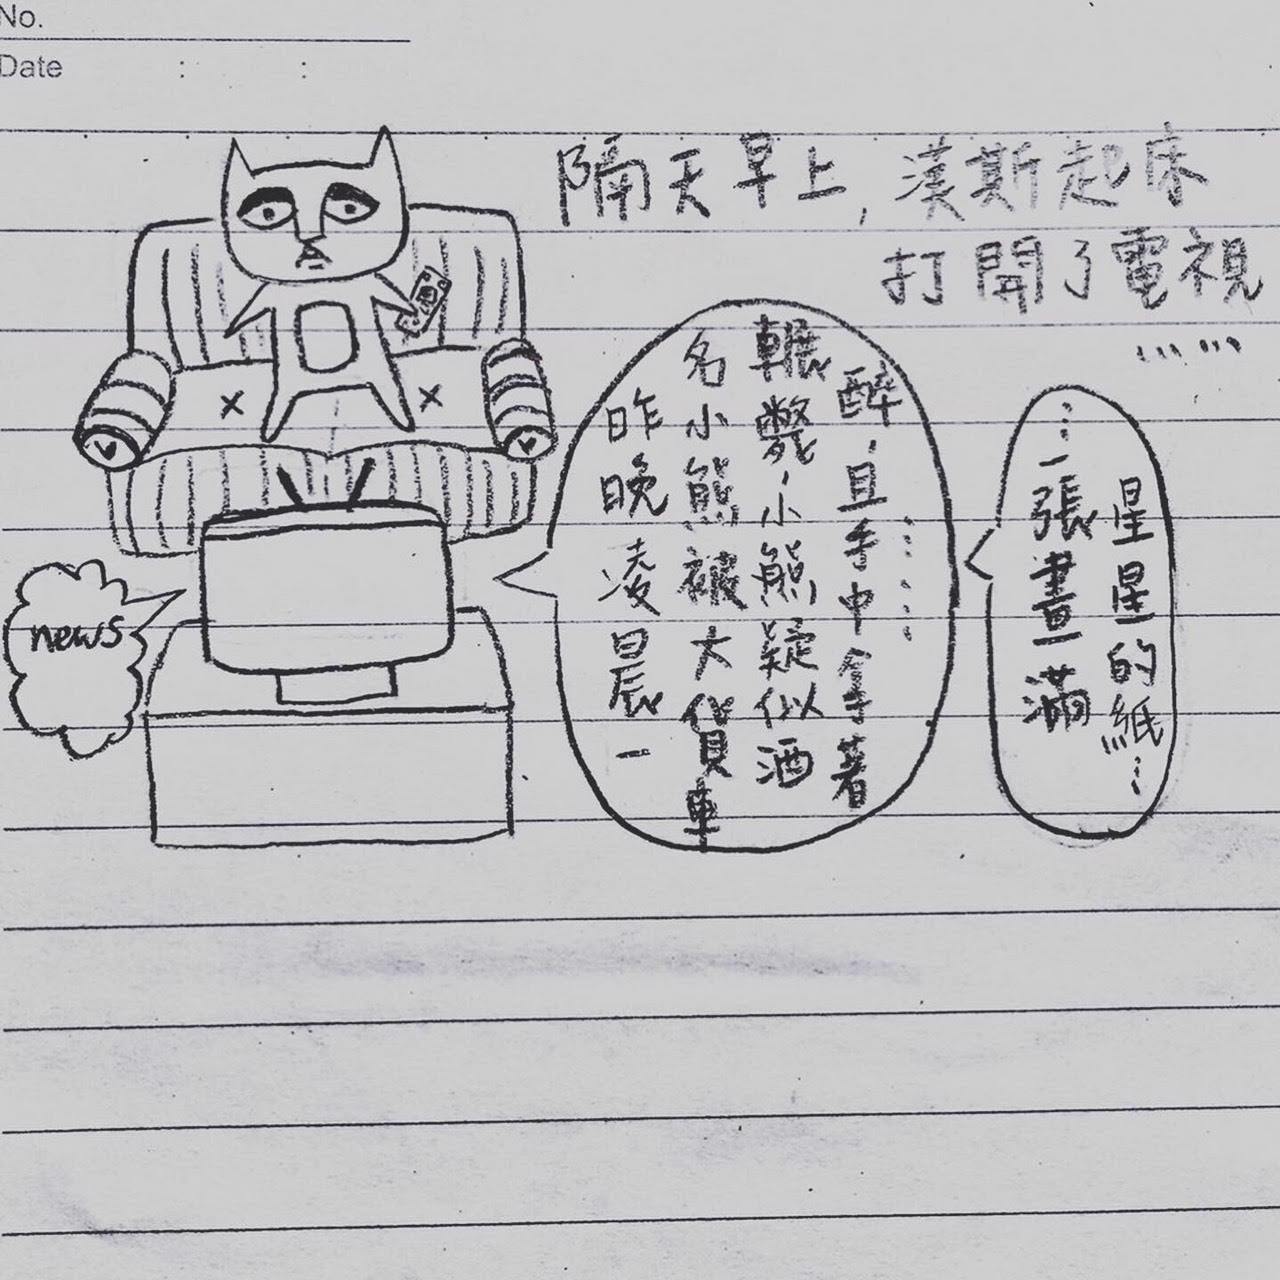 No.
Date : :
隔天早上，漢斯起床
打開了電視
……
news
昨晚凌晨一
名小熊被大貨車
輾斃，小熊疑似酒
醉，且手中拿著
……
…一張畫滿
星星的紙…